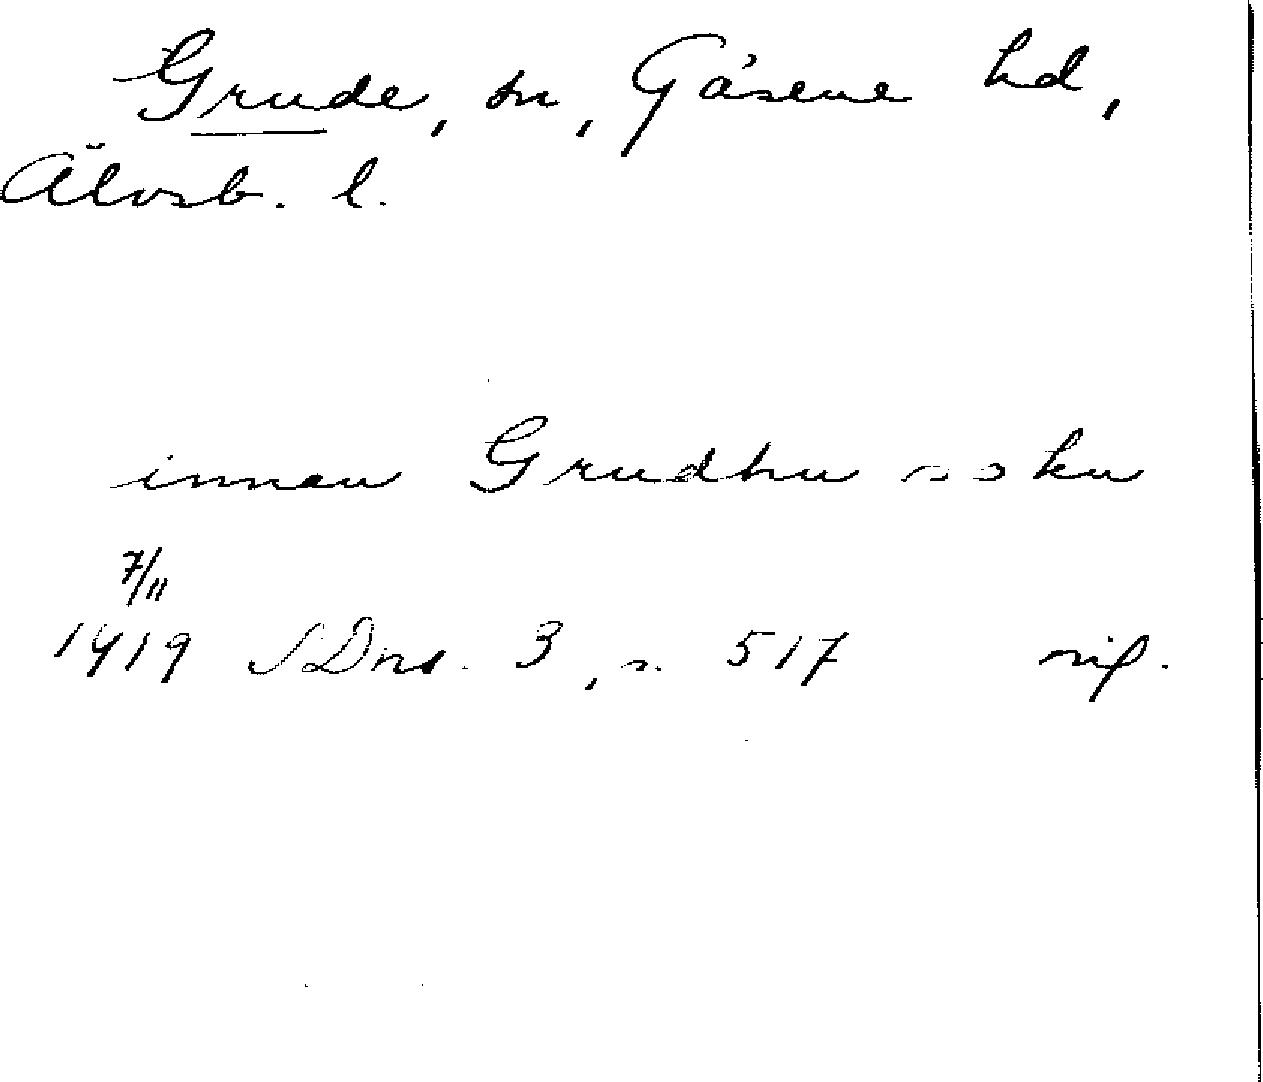 Grude, sn, Gäsene hd,
Älvsb. l.
innan Grudhu soku
7/11
1419 SDns. 3, s. 517 nif.